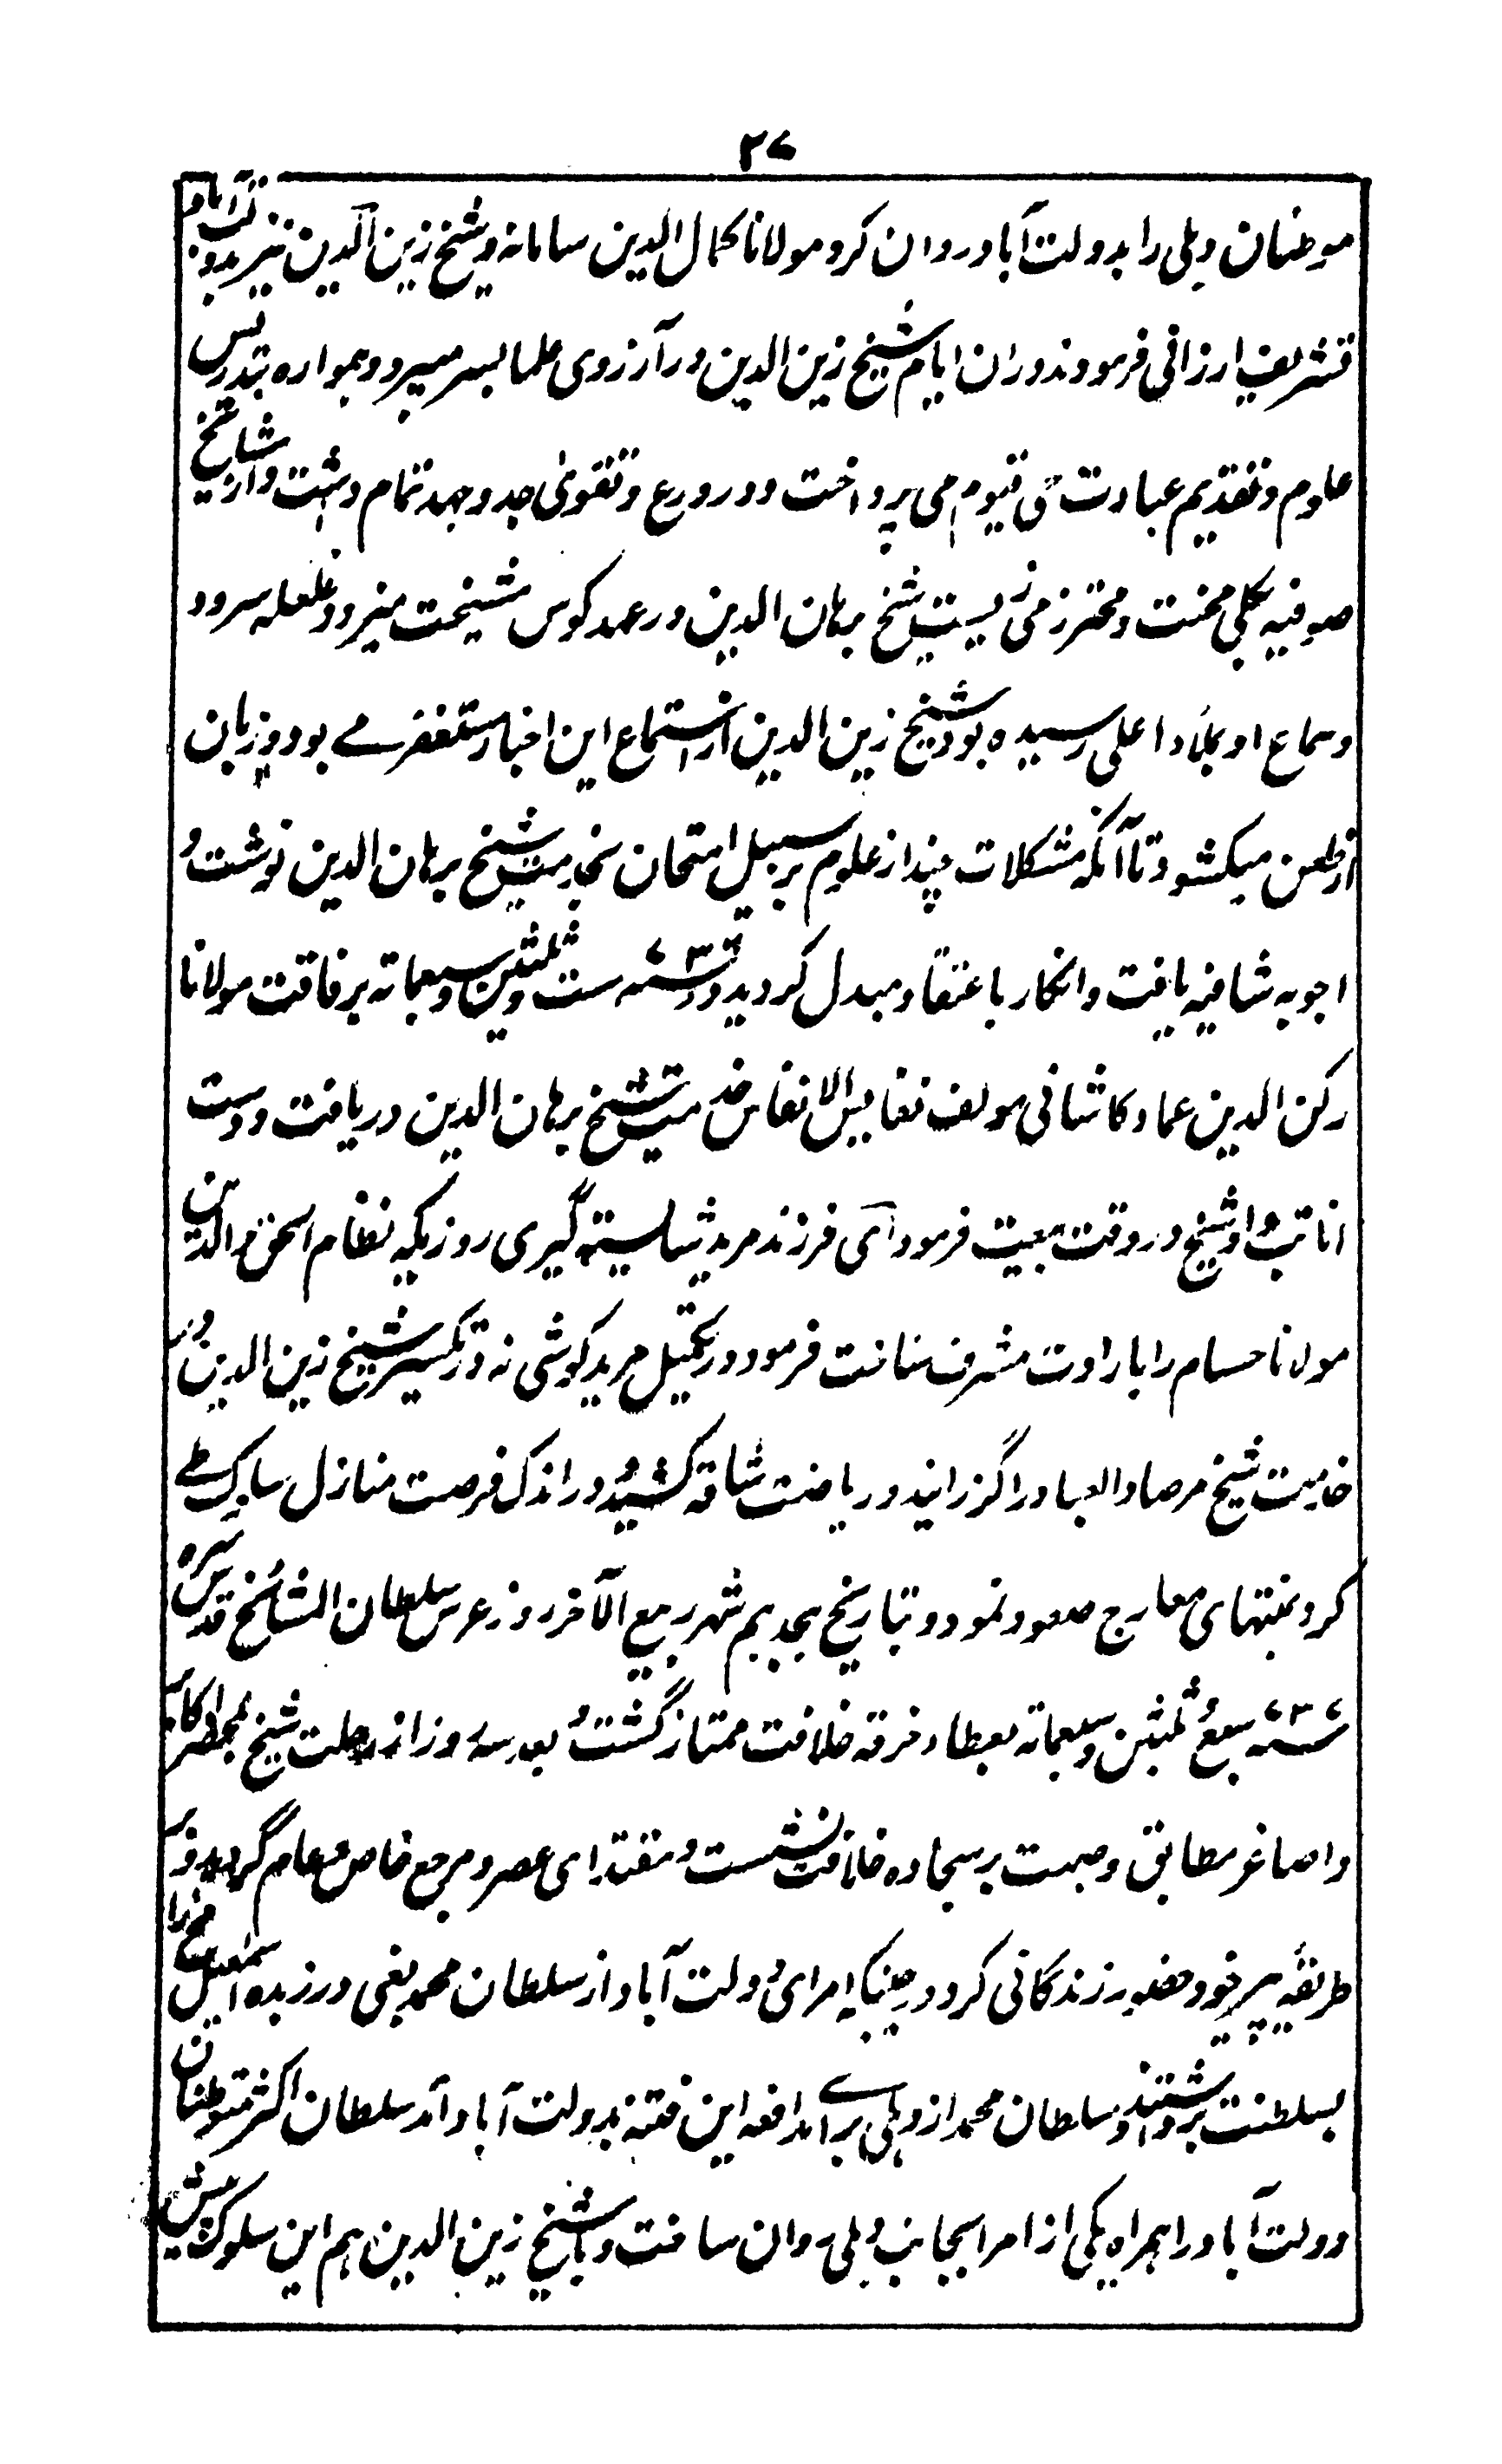 ۲۷
موطنان دہلی را بدولت آباد روان کرد مولانا کمال الدین سامانہ و شیخ زین الدین نیز بدولت آباد
تشریف ارزانی فرمودند دران ایام شیخ زین الدین در آرزوی علما بسر میبرد و ہموارہ بتدریس
علوم و تقدیم عبادت حی قیوم می پرداخت و در ورع و تقویٰ جد و جہد تمام داشت و از مشائخ
صوفیہ بکلی مجتنب و محترز می زیست شیخ برہان الدین در عہد کوس مشیخت میزد و غلغلہ سرود
و سماع او بملاء اعلی رسیدہ بود شیخ زین الدین از استماع این اخبار متنفر مے بود و زبان
از طعن میکشود تا آنکہ مشکلات چند از علوم بر سبیل امتحان بخدمت شیخ برہان الدین نوشت و
اجوبہ شافیہ یافت و انکار باعتقاد مبدل گردید و در ۷۳۶ سنہ ست و ثلثین و سبعمایہ برفاقت مولانا
رکن الدین عماد کاشانی مولف نفایس الانفاس خدمت شیخ برہان الدین دریافت و دست
انابت داد شیخ در وقت بیعت فرمود ای فرزند مرید شایستہ گیری روزیکہ نظام الحق والدین
مولانا حسام را بارادت مشرف ساخت فرمود در تکمیل مرید کوشی نہ در تکثیر شیخ زین الدین در
خدمت شیخ مرصاد العباد را گزرانید و ریاضت شاقہ کشید و در اندک فرصت منازل سلوک طے
کرد بمنتہای معارج صعود نمود و بتاریخ ہجدہم شہر ربیع الآخر روز عرس سلطان المشائخ قدس سرہ
۷۳۷ سنہ سبع و ثلثین و سبعمایہ بعطاء خرقہ خلافت ممتاز گشت و بعد سہ روز از رحلت شیخ بمحضر اکابر
و اصاغر مطابق وصیت بر سجادہ خلافت نشست و مقتدای عصر و مرجع خاص و عام گردید و بر
طریقہ پیر خود حضور زندگانی کرد در حینیکہ امرای دولت آباد از سلطان محمد بغی ورزیدہ اسمعیل مخ را
بسلطنت برداشتند و سلطان محمد از دہلی برای مدافعہ این فتنہ بدولت آباد آمد سلطان اکثر متوطنان
دولت آباد را ہمراہ یکی از امرا بجانب دہلی روان ساخت و با شیخ زین الدین ہم این سلوک پیش